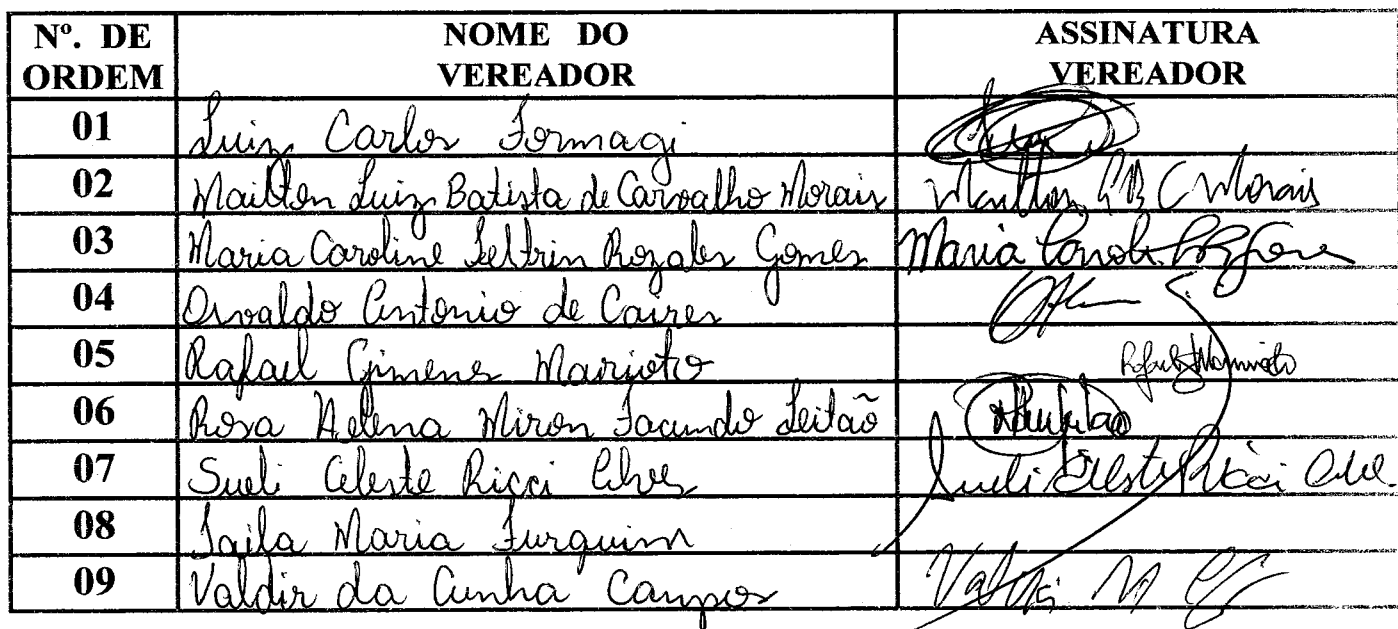 Nº. DE ORDEM NOME DO VEREADOR ASSINATURA VEREADOR
01 Luiz Carlos Formagi Luiz
02 Mailton Luiz Batista de Carvalho Morais Mailton LB C Morais
03 Maria Caroline Feltrin Rozales Gomes Maria
04 Osvaldo Antonio de Caires
05 Rafael Gimenes Marioto Rafael
06 Rosa Helena Miron Facundo Leitão
07 Sueli Celeste Ricci Alves Sueli Celeste Ricci
08 Taila Maria Furquim
09 Valdir da Cunha Campos